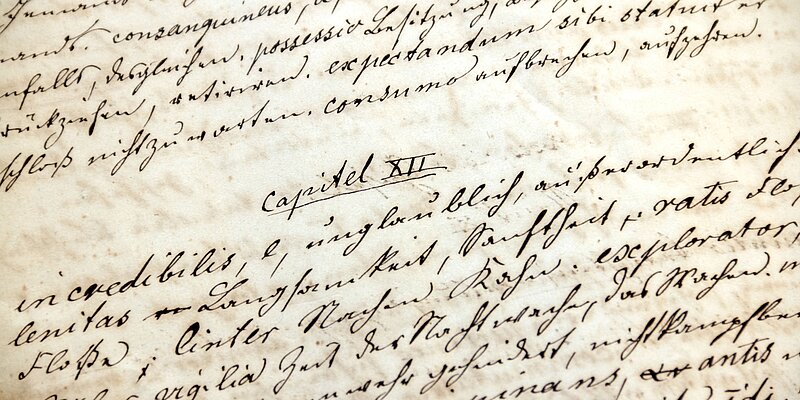 Jemands
mands. consanguineus,
nfalls, desgleichen. possessio Besitzung,
rückziehen, retiriren. expectandum sibi statuit er
schloß nicht zu warten. consumo aufbrechen, aufzehren.
Capitel XII
incredibilis, e, unglaublich, außerordentlich.
lenitas Langsamkeit, Sanftheit. ratis Flo
Floße. linter Nachen Kahn. explorator,
vigilia Zeit der Nachtwache, das Wachen.
gehindert, nicht kampfber
antis